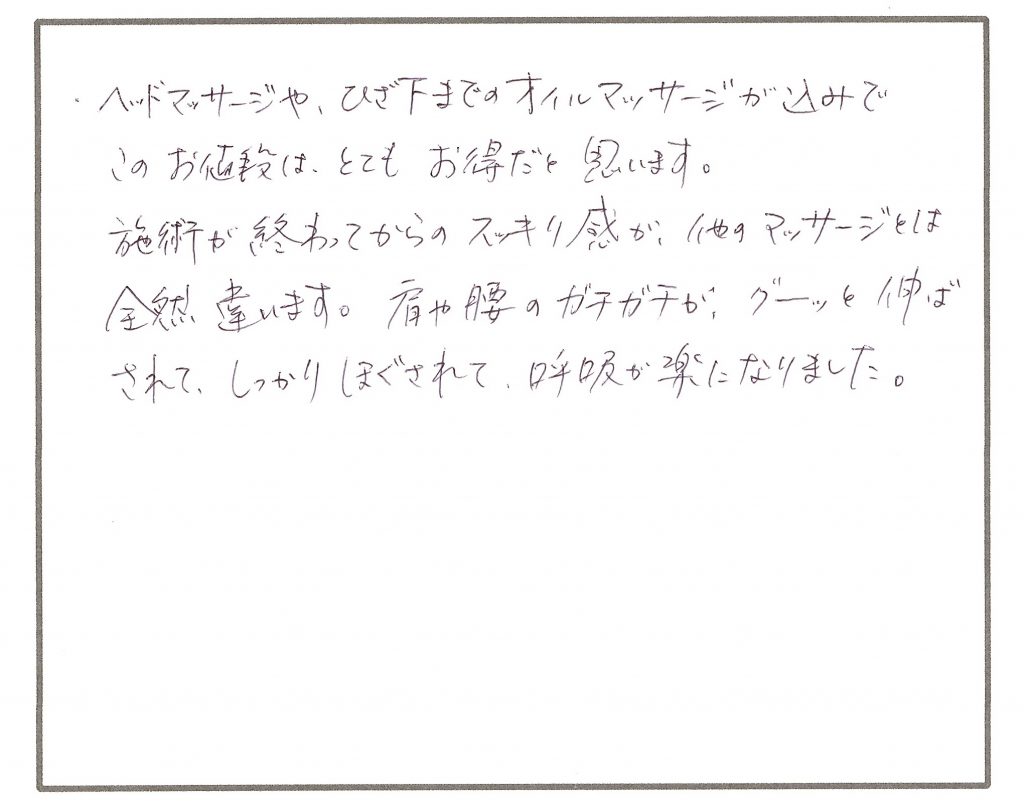 ・ヘッドマッサージや、ひざ下までのオイルマッサージが込みで
このお値段は、とてもお得だと思います。
施術が終わってからのスッキリ感が、他のマッサージとは
全然違います。肩や腰のガチガチが、グーッと伸ば
されて、しっかりほぐされて、呼吸が楽になりました。